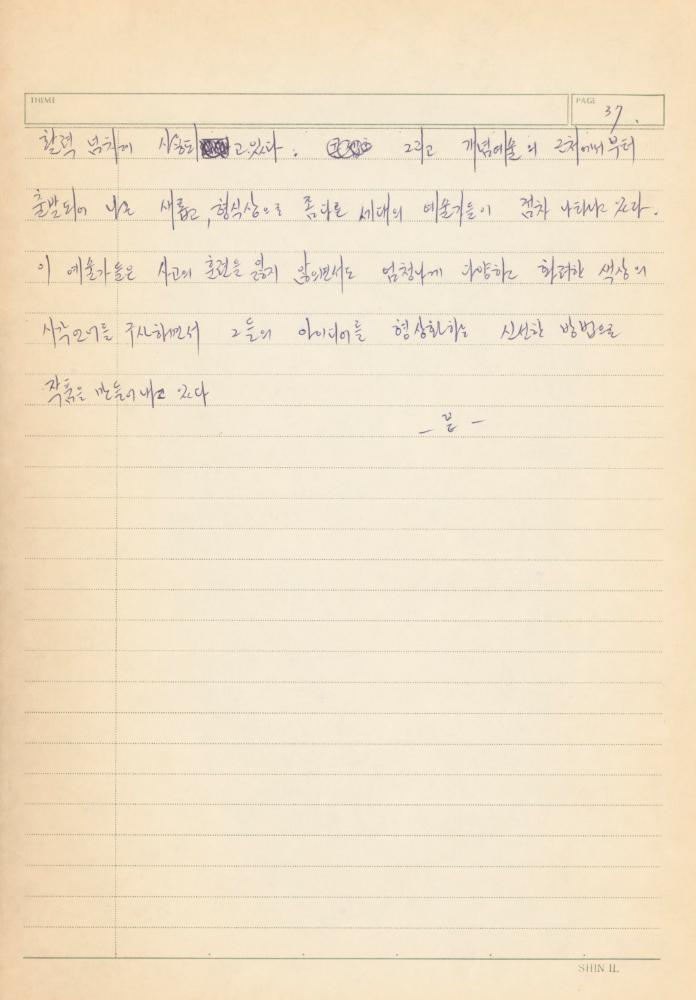 THEME
PAGE
37.
활력 넘치게 사용되고 있다. 그리고 개념예술의 근처에서부터
출발되어 나온 새롭고, 형식상으로 좀 다른 세대의 예술가들이 점차 나타나고 있다.
이 예술가들은 사고의 훈련을 잃지 않으면서도 엄청나게 다양하고 화려한 색상의
시각언어를 구사하면서 그들의 아이디어를 형상화하는 신선한 방법으로
작품을 만들어내고 있다
- 끝 -
SHIN IL